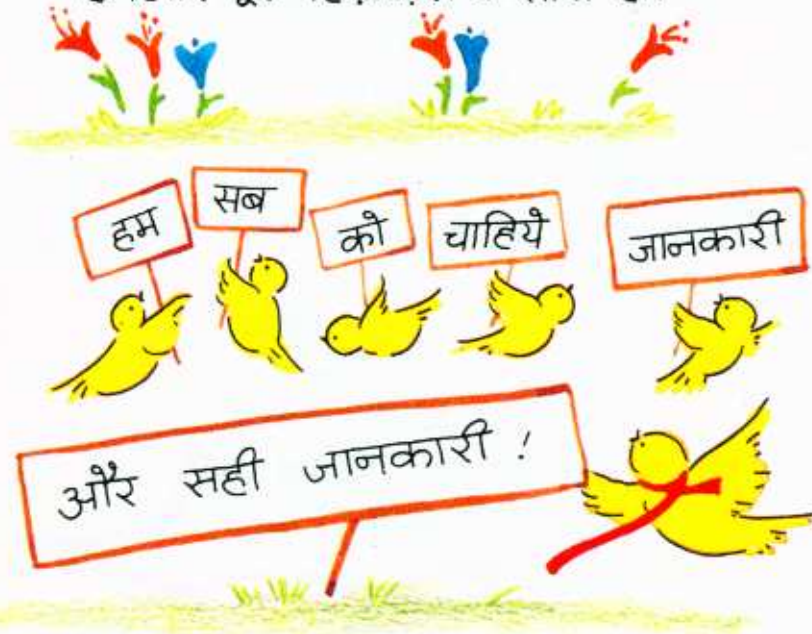 हम सब को चाहिये जानकारी
और सही जानकारी !